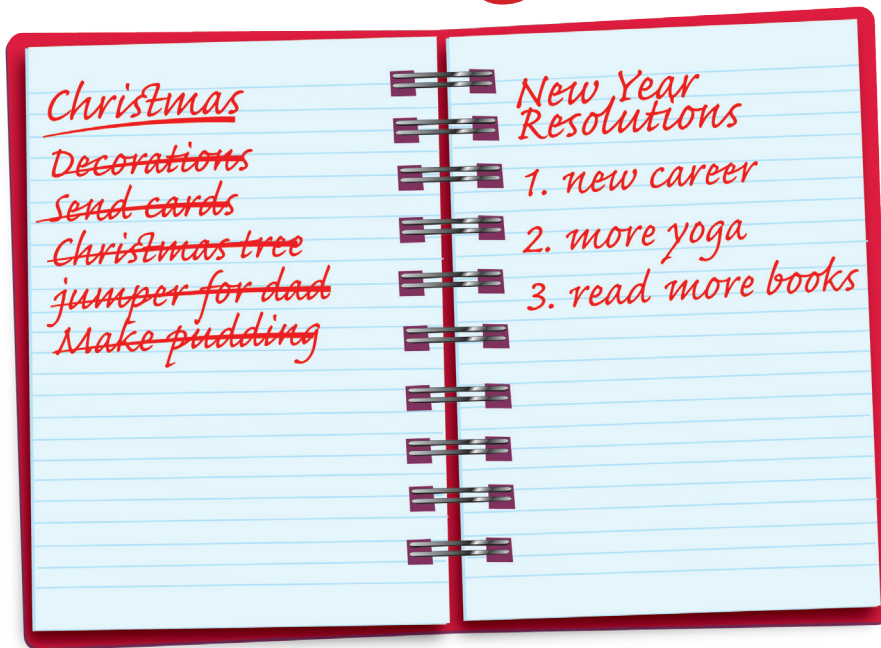 Christmas
Decorations
Send cards
Christmas tree
jumper for dad
Make pudding
New Year
Resolutions
1. new career
2. more yoga
3. read more books